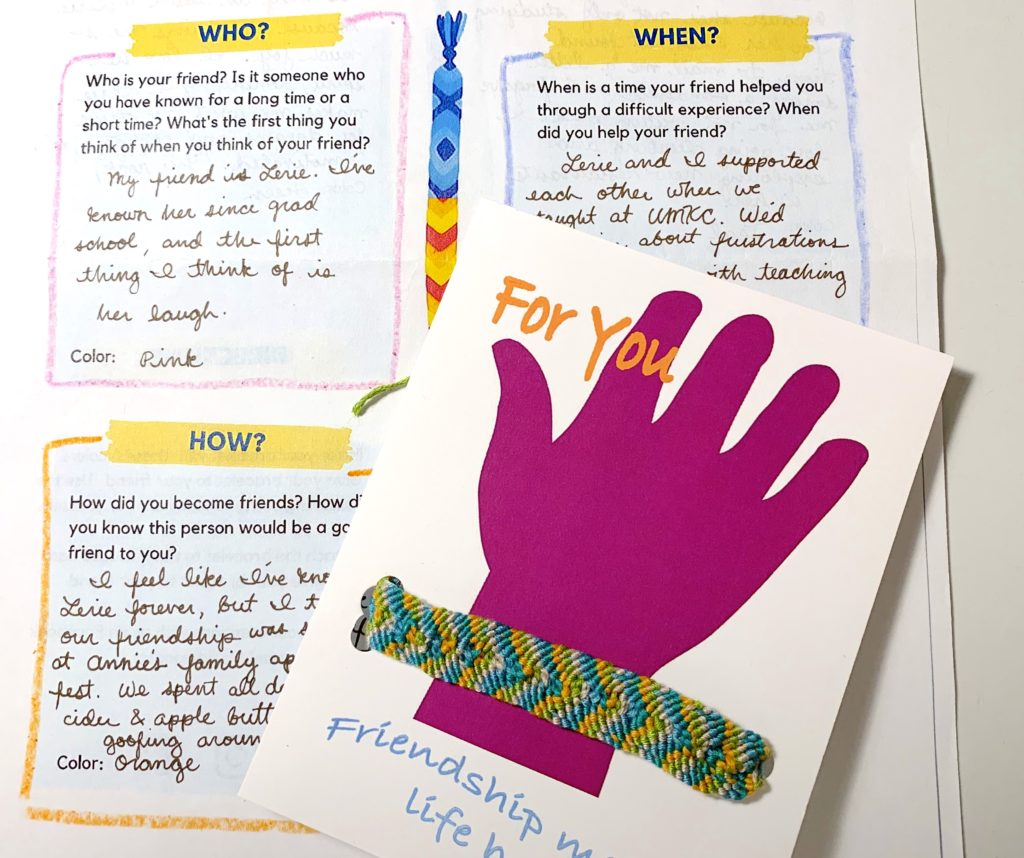 WHO?
Who is your friend? Is it someone who
you have known for a long time or a
short time? What's the first thing you
think of when you think of your friend?
My friend is Lerie. I've
known her since grad
school, and the first
thing I think of is
her laugh.
Color: Pink
WHEN?
When is a time your friend helped you
through a difficult experience? When
did you help your friend?
Lerie and I supported
each other when we
taught at UMKC. We'd
about frustrations
with teaching
HOW?
How did you become friends? How
you know this person would be a
friend to you?
I feel like I've
Lerie forever, but I
our friendship was
at Annie's family
fest. We spent all
cider & apple
goofing
Color: Orange
For You
Friendship
life